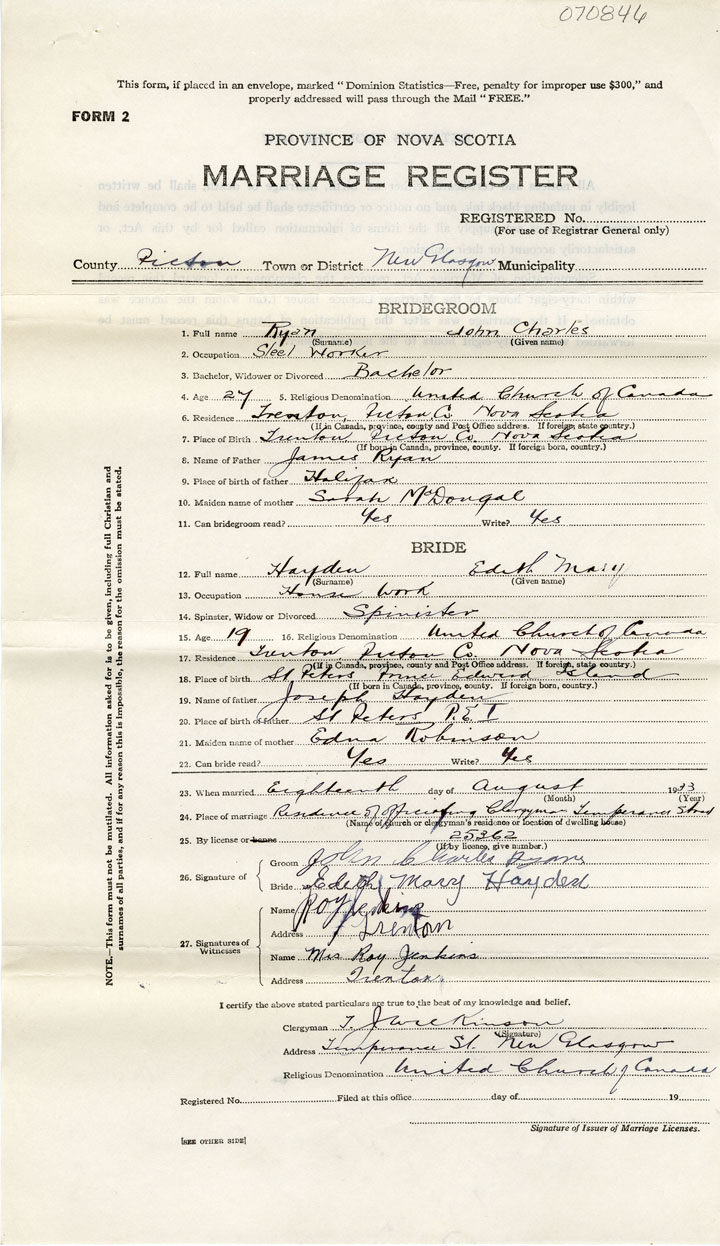 070846
This form, if placed in an envelope, marked "Dominion Statistics—Free, penalty for improper use $300," and
properly addressed will pass through the Mail "FREE."
FORM 2
PROVINCE OF NOVA SCOTIA
MARRIAGE REGISTER
REGISTERED No.
(For use of Registrar General only)
County Pictou Town or District New Glasgow Municipality
BRIDEGROOM
1. Full name Ryan John Charles
(Surname) (Given name)
2. Occupation Steel Worker
3. Bachelor, Widower or Divorced Bachelor
4. Age 27 5. Religious Denomination United Church of Canada
6. Residence Trenton, Pictou Co. Nova Scotia
(If in Canada, province, county and Post Office address. If foreign, state country.)
7. Place of Birth Trenton Pictou Co. Nova Scotia
(If born in Canada, province, county. If foreign born, country.)
8. Name of Father James Ryan
9. Place of birth of father Halifax
10. Maiden name of mother Sarah McDougal
11. Can bridegroom read? Yes Write? Yes
BRIDE
12. Full name Hayden Edith Mary
(Surname) (Given name)
13. Occupation House Work
14. Spinster, Widow or Divorced Spinister
15. Age 19 16. Religious Denomination United Church of Canada
17. Residence Trenton Pictou Co. Nova Scotia
(If in Canada, province, county and Post Office address. If foreign, state country.)
18. Place of Birth St Peters Prince Edward Island
(If born in Canada, province, county. If foreign born, country.)
19. Name of father Joseph Hayden
20. Place of birth of father St Peters P.E.I
21. Maiden name of mother Edna Robinson
22. Can bride read? Yes Write? Yes
23. When married Eighteenth day of August 1933
(Month) (Year)
24. Place of marriage Residence of officiating Clergyman Temperance Street
(Name of church or clergyman's residence or location of dwelling house)
25. By license or banns 25362
(If by licence, give number.)
26. Signature of
Groom John Charles Ryan
Bride Edith Mary Hayden
27. Signatures of Witnesses
Name Roy Jenkins
Address Trenton
Name Mrs Roy Jenkins
Address Trenton
I certify the above stated particulars are true to the best of my knowledge and belief.
Clergyman T. J Wilkinson
(Signature)
Address Temperance St. New Glasgow
Religious Denomination United Church of Canada
Registered No. Filed at this office day of 19
Signature of Issuer of Marriage Licenses.
[SEE OTHER SIDE]
NOTE.—This form must not be mutilated. All information asked for is to be given, including full Christian and
surnames of all parties, and if for any reason this is impossible, the reason for the omission must be stated.